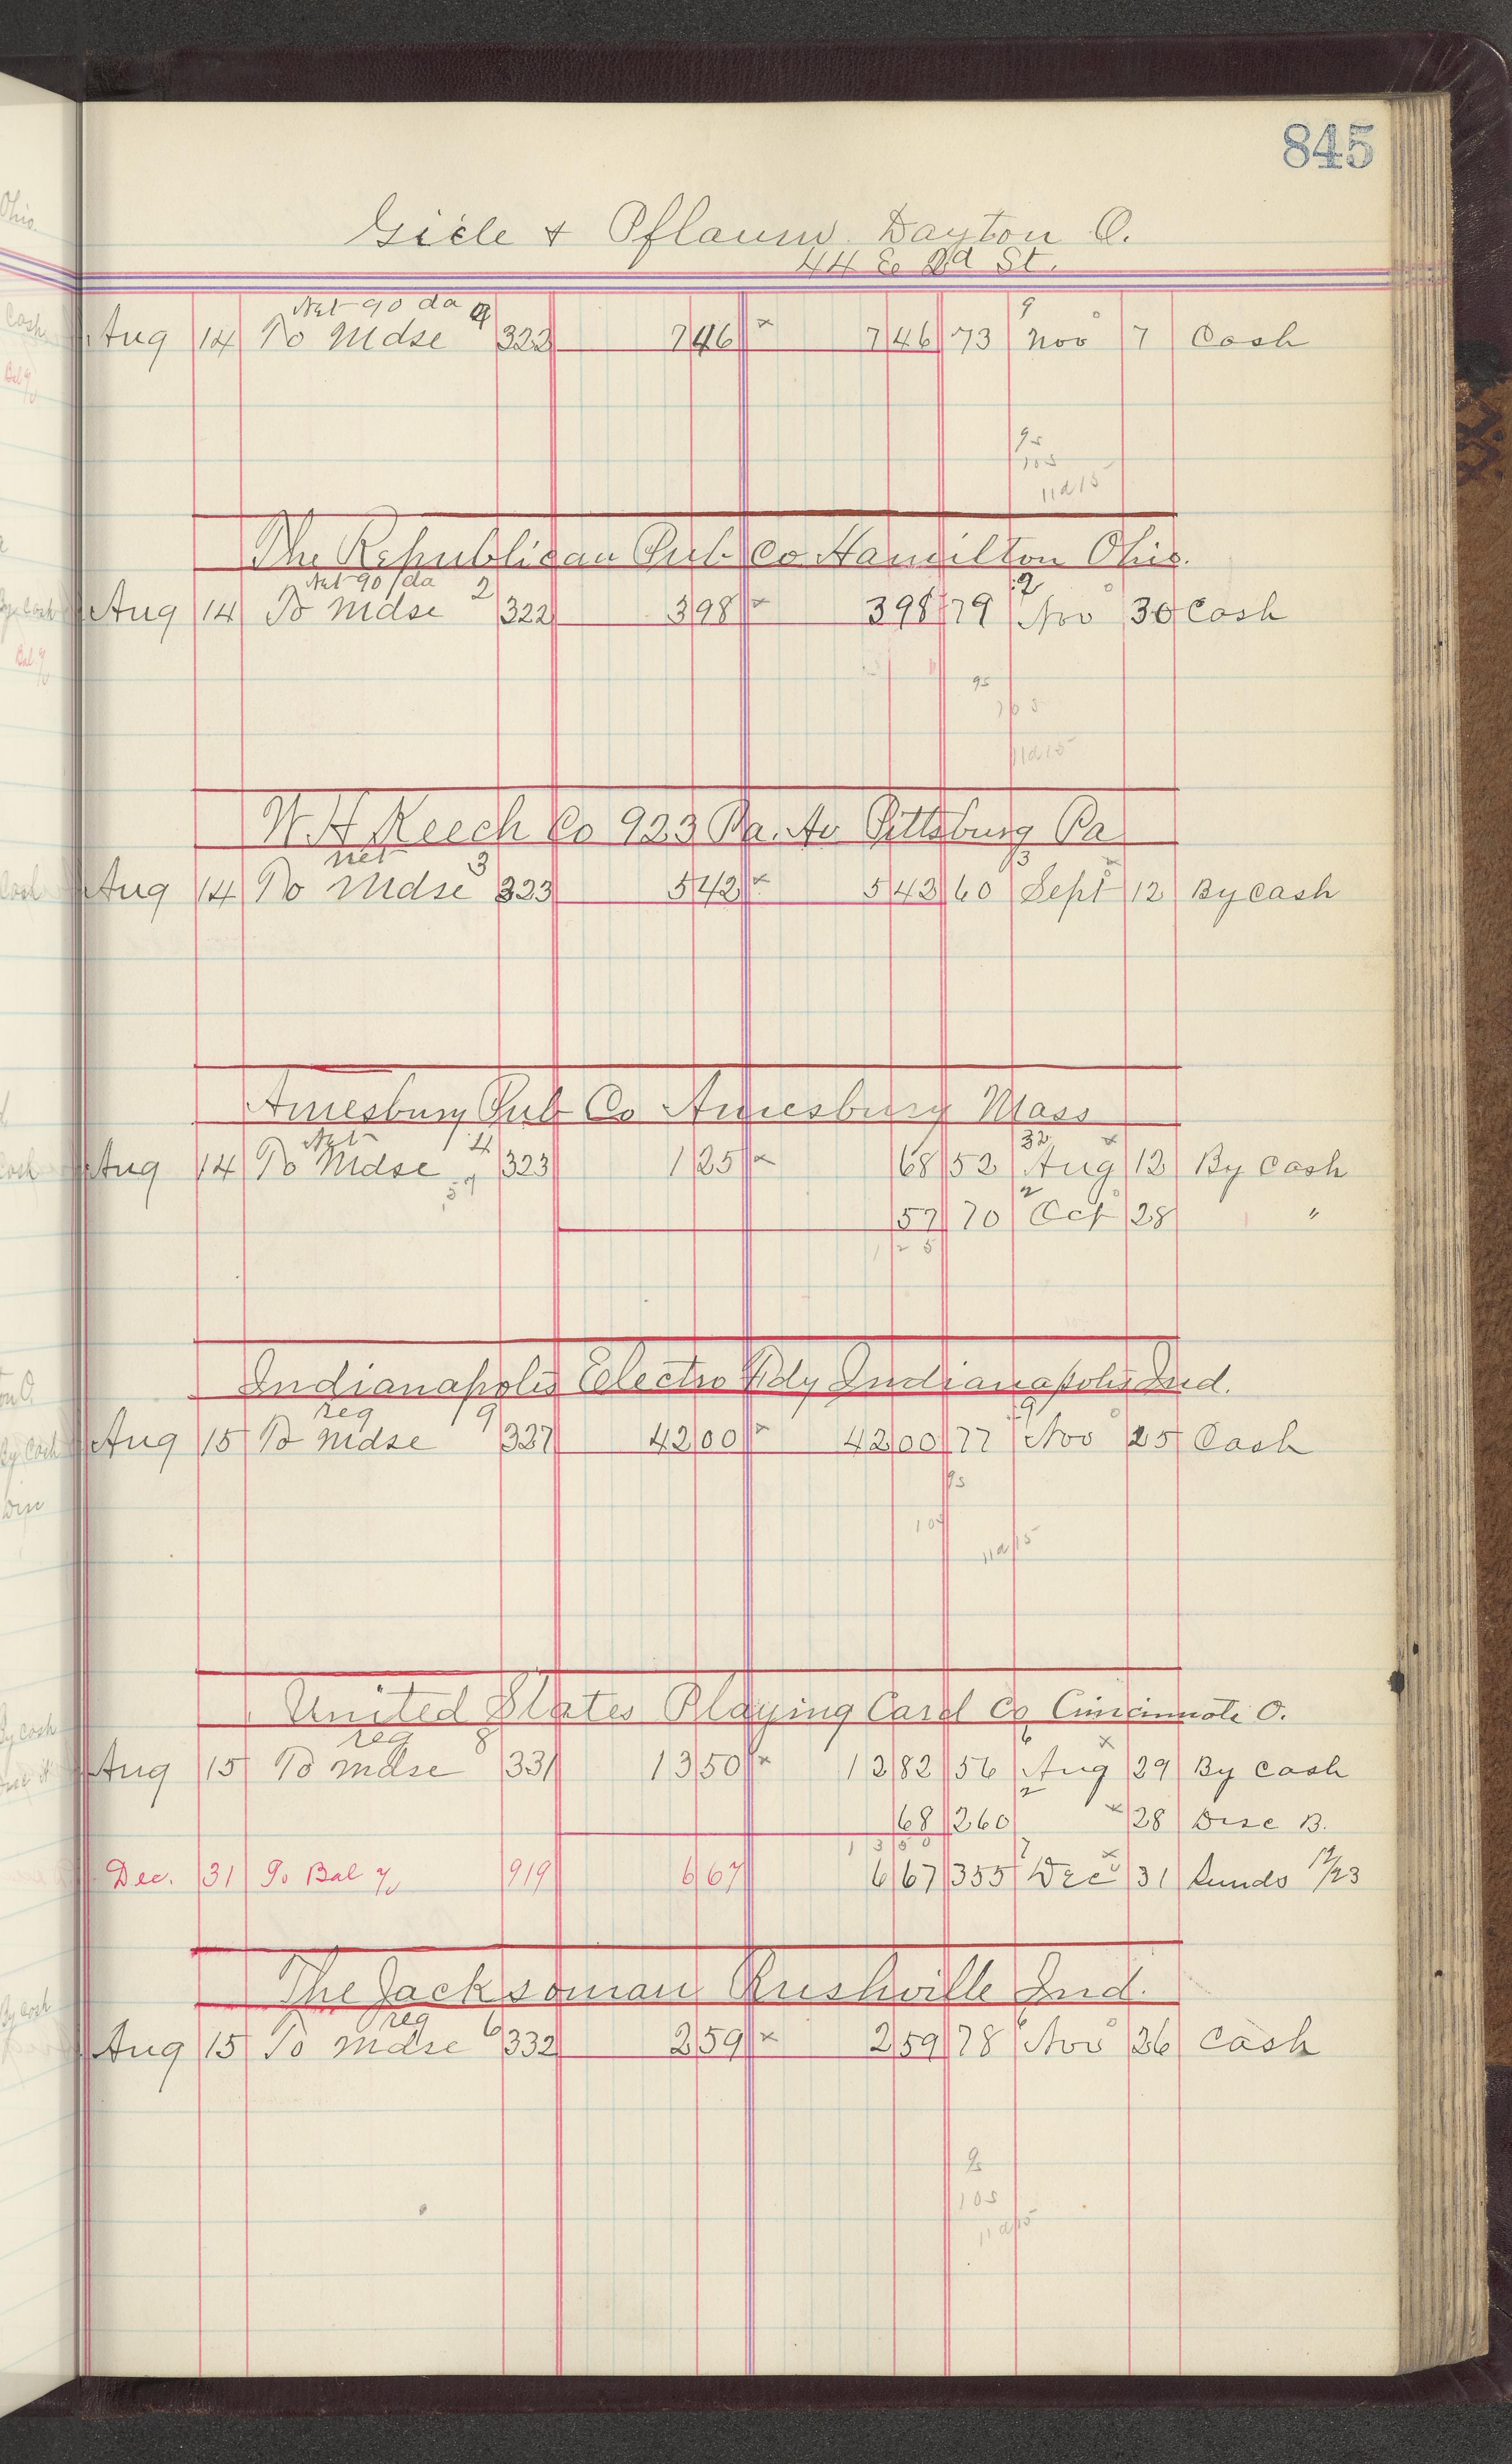 845
Giele & Pflaum Dayton O.
44 E 2d St.
Net 90 da
Aug 14 To Mdse 4 322 746 x 746 73 9 Nov 7 Cash
9s
10s
11d15
The Republican Pub Co Hamilton Ohio.
Net 90 da
Aug 14 To Mdse 2 322 398 x 398 79 2 Nov 30 Cash
9s
10s
11d15
W. H. Keech Co 923 Pa. Av Pittsburg Pa
net
Aug 14 To Mdse 3 323 542 x 542 60 3 Sept 12 By cash
Amesbury Pub Co Amesbury Mass
Net
Aug 14 To Mdse 4 323 125 x 68 52 32 Aug 12 By cash
57 57 70 2 Oct 28 "
125
Indianapolis Electro Fdy Indianapolis Ind.
reg
Aug 15 To Mdse 9 327 4200 x 4200 77 9 Nov 25 Cash
9s
10s
11d15
United States Playing Card Co Cincinnati O.
reg
Aug 15 To Mdse 8 331 1350 x 1282 56 6 Aug 29 By cash
68 260 2 x 28 Disc B.
1350
Dec. 31 To Bal 919 667 667 355 7 Dec 31 Sunds 12/23
The Jacksonian Rushville Ind.
reg
Aug 15 To Mdse 6 332 259 x 259 78 6 Nov 26 Cash
9s
10s
11d15